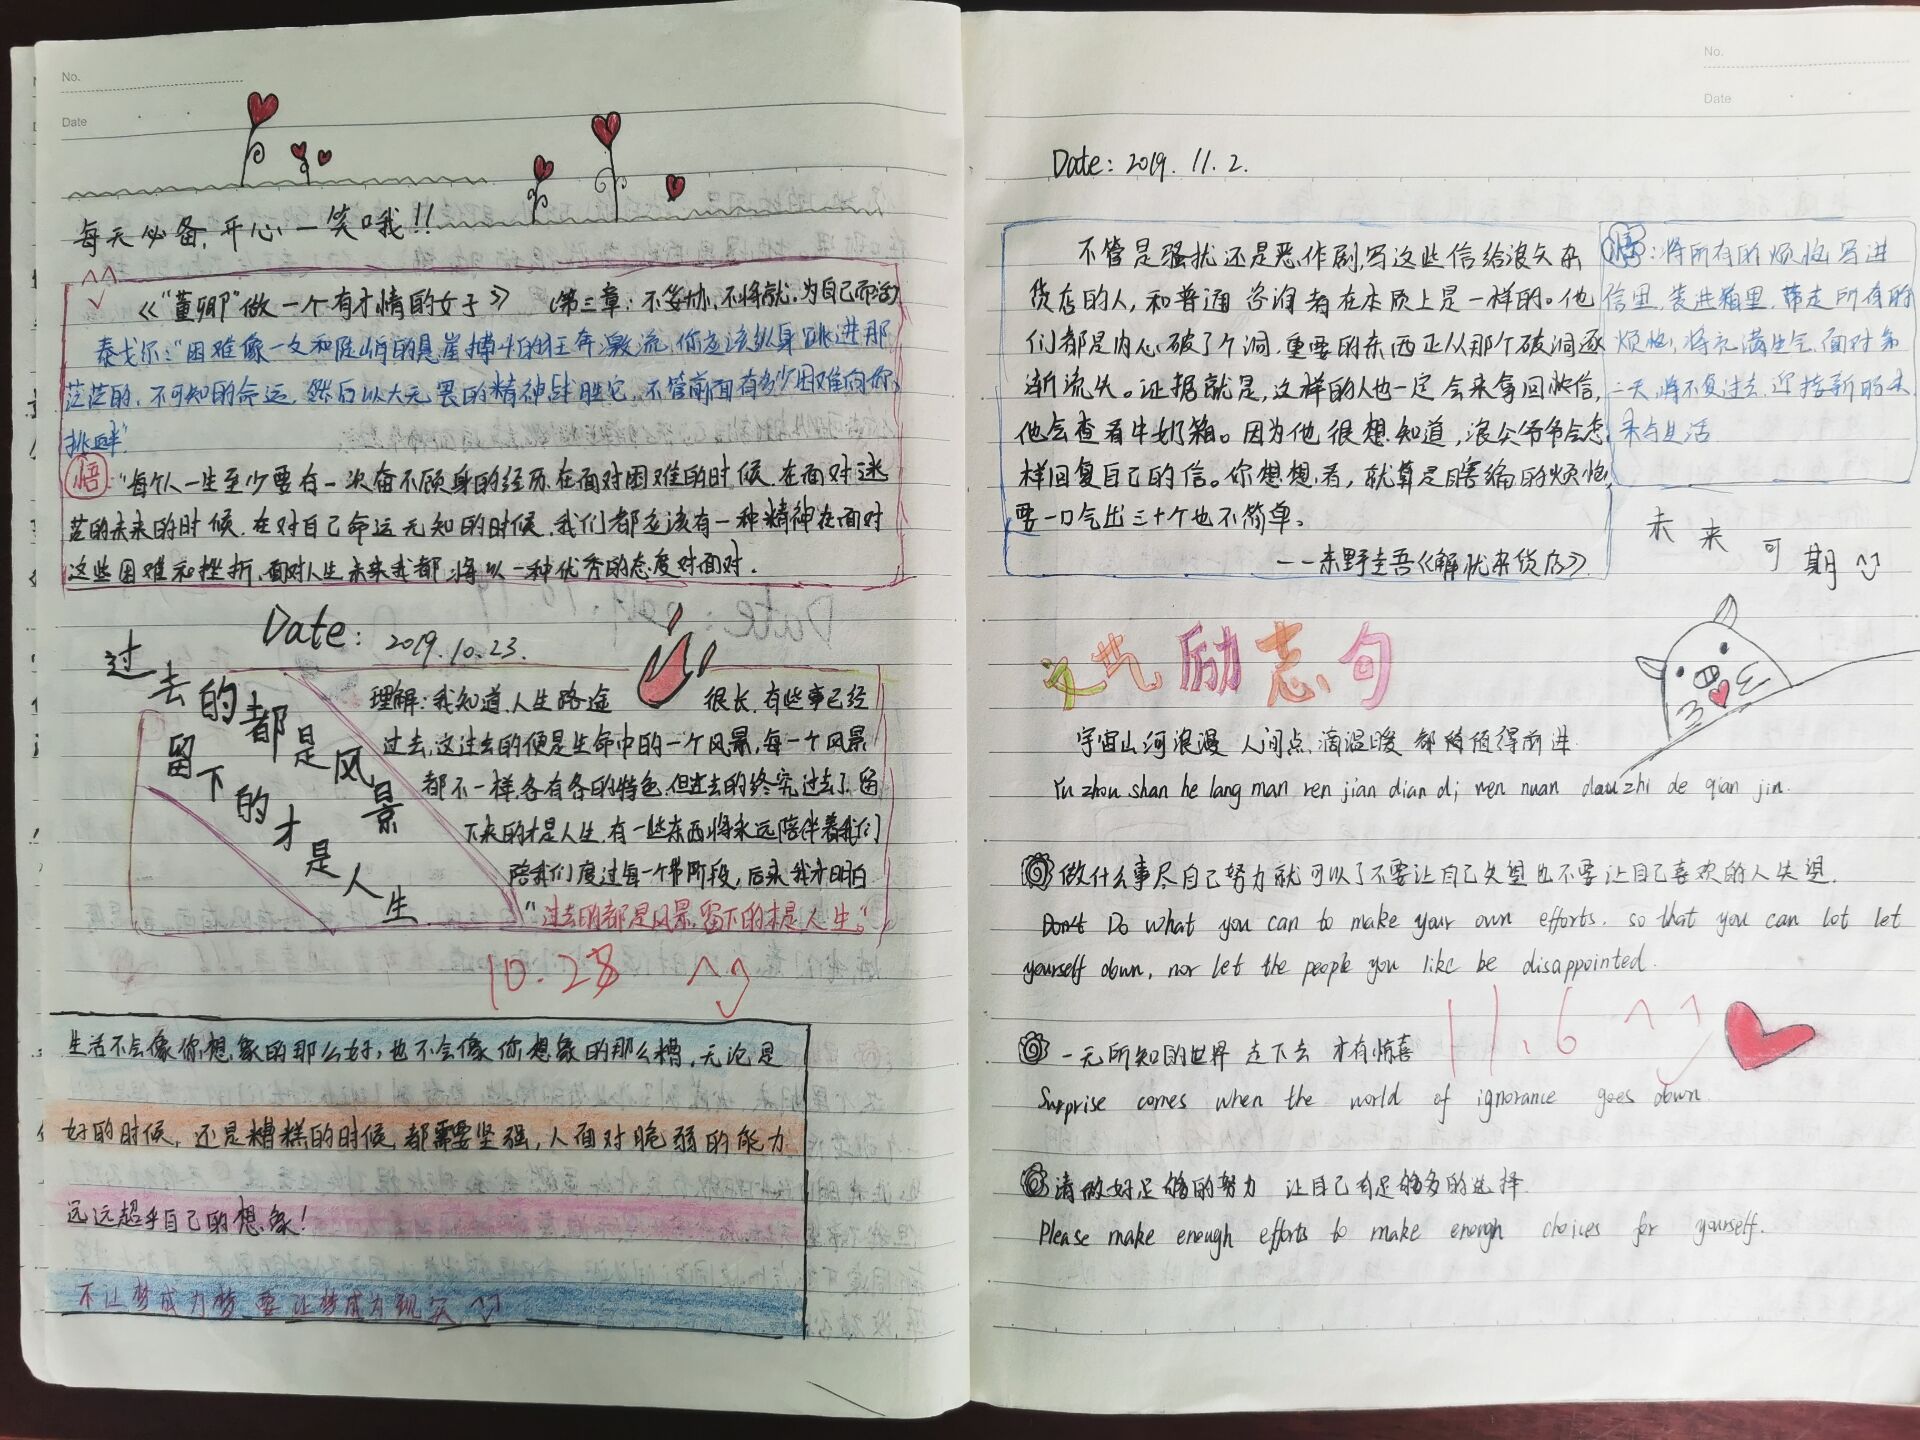 No.
Date
每天必备,开心一笑哦!!
《"董卿"做一个有才情的女子》 (第三章:不妥协,不将就,为自己而活)
泰戈尔:"困难像一支和陡峭的悬崖搏斗的狂奔激流,你应该纵身跳进那
茫茫的,不可知的命运,然后以大无畏的精神战胜它,不管前面有多少困难向你
挑衅"
悟:"每个人一生至少要有一次奋不顾身的经历,在面对困难的时候,在面对迷
茫的未来的时候,在对自己命运无知的时候,我们都应该有一种精神在面对
这些困难和挫折,面对人生未来我都将以一种优秀的态度对面对.
Date: 2019.10.23.
过去的都是风景
留下的才是人生
理解:我知道,人生路途 很长,有些事已经
过去,这过去的便是生命中的一个风景,每一个风景
都不一样,各有各的特色,但过去的终究过去了,留
下来的才是人生,有一些东西将永远陪伴着我们
陪我们度过每一个阶段,后来我才明白
"过去的都是风景,留下的才是人生。"
10.28
生活不会像你想象的那么好,也不会像你想象的那么糟,无论是
好的时候,还是糟糕的时候,都需要坚强,人面对脆弱的能力
远远超乎自己的想象!
不让梦成为梦 要让梦成为现实
No.
Date
Date: 2019. 11. 2.
不管是骚扰还是恶作剧,写这些信给浪矢杂
货店的人,和普通咨询者在本质上是一样的。他
们都是内心破了个洞,重要的东西正从那个破洞逐
渐流失。证据就是,这样的人也一定会来拿回收信,
他会查看牛奶箱。因为他很想知道,浪矢爷爷会怎
样回复自己的信。你想想看,就算是瞎编的烦恼,
要一口气出三十个也不简单。
——东野圭吾《解忧杂货店》
悟:将所有的烦恼写进
信里,装进箱里,带走所有的
烦恼,将充满生气,面对第
二天,将不复过去,迎接新的未
来与生活
未来可期
文艺励志句
宇宙山河浪漫 人间点滴温暖 都值得前进
Yu zhou shan he lang man ren jian dian di wen nuan dou zhi de qian jin.
做什么事尽自己努力就可以了不要让自己失望也不要让自己喜欢的人失望.
Don't Do what you can to make your own efforts. so that you can lot let
yourself down, nor let the people you like be disappointed.
11.6
一无所知的世界 走下去 才有惊喜
Surprise comes when the world of ignorance goes down.
请做好足够的努力 让自己有足够多的选择
Please make enough efforts to make enough choices for yourself.